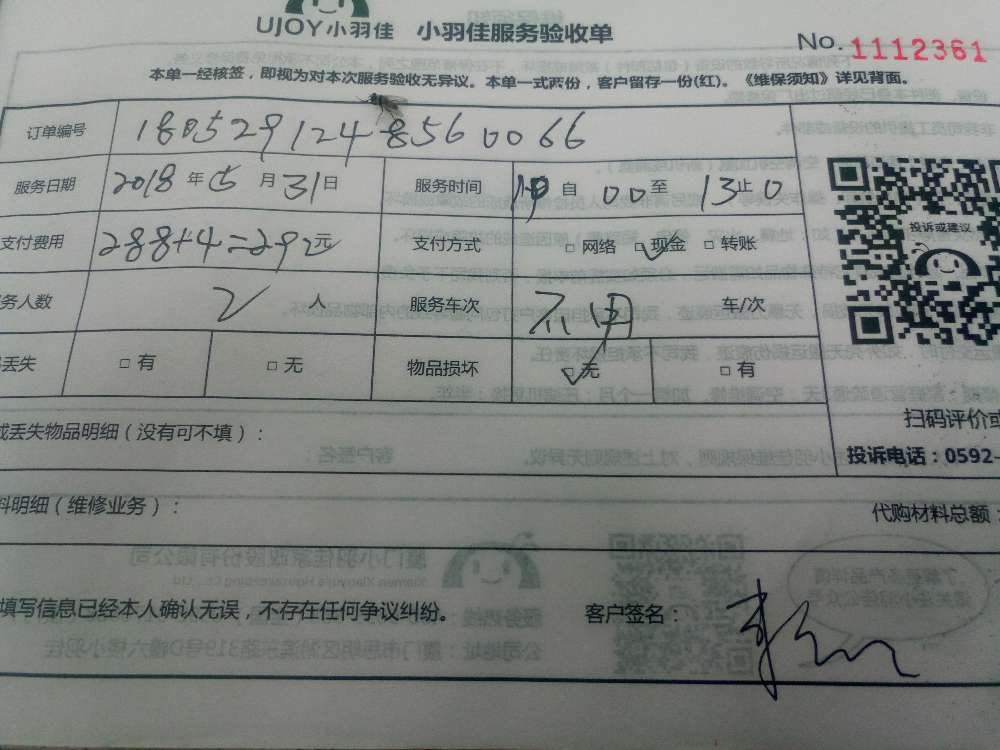 UJOY小羽佳 小羽佳服务验收单
No. 1112361
本单一经核签，即视为对本次服务验收无异议。本单一式两份，客户留存一份(红)。《维保须知》详见背面。
订单编号 180529124856 0066
服务日期 2018 年 05 月 31 日 服务时间 自 00 至 13 止 0
投诉或建议
支付费用 288+4=292元 支付方式 □ 网络 □ 现金 □ 转账
务人数 2 人 服务车次 不用 车/次
丢失 □ 有 □ 无 物品损坏 □ 无 □ 有
扫码评价或
或丢失物品明细（没有可不填）：
投诉电话：0592-
料明细（维修业务）：
代购材料总额：
填写信息已经本人确认无误，不存在任何争议纠纷。 客户签名：